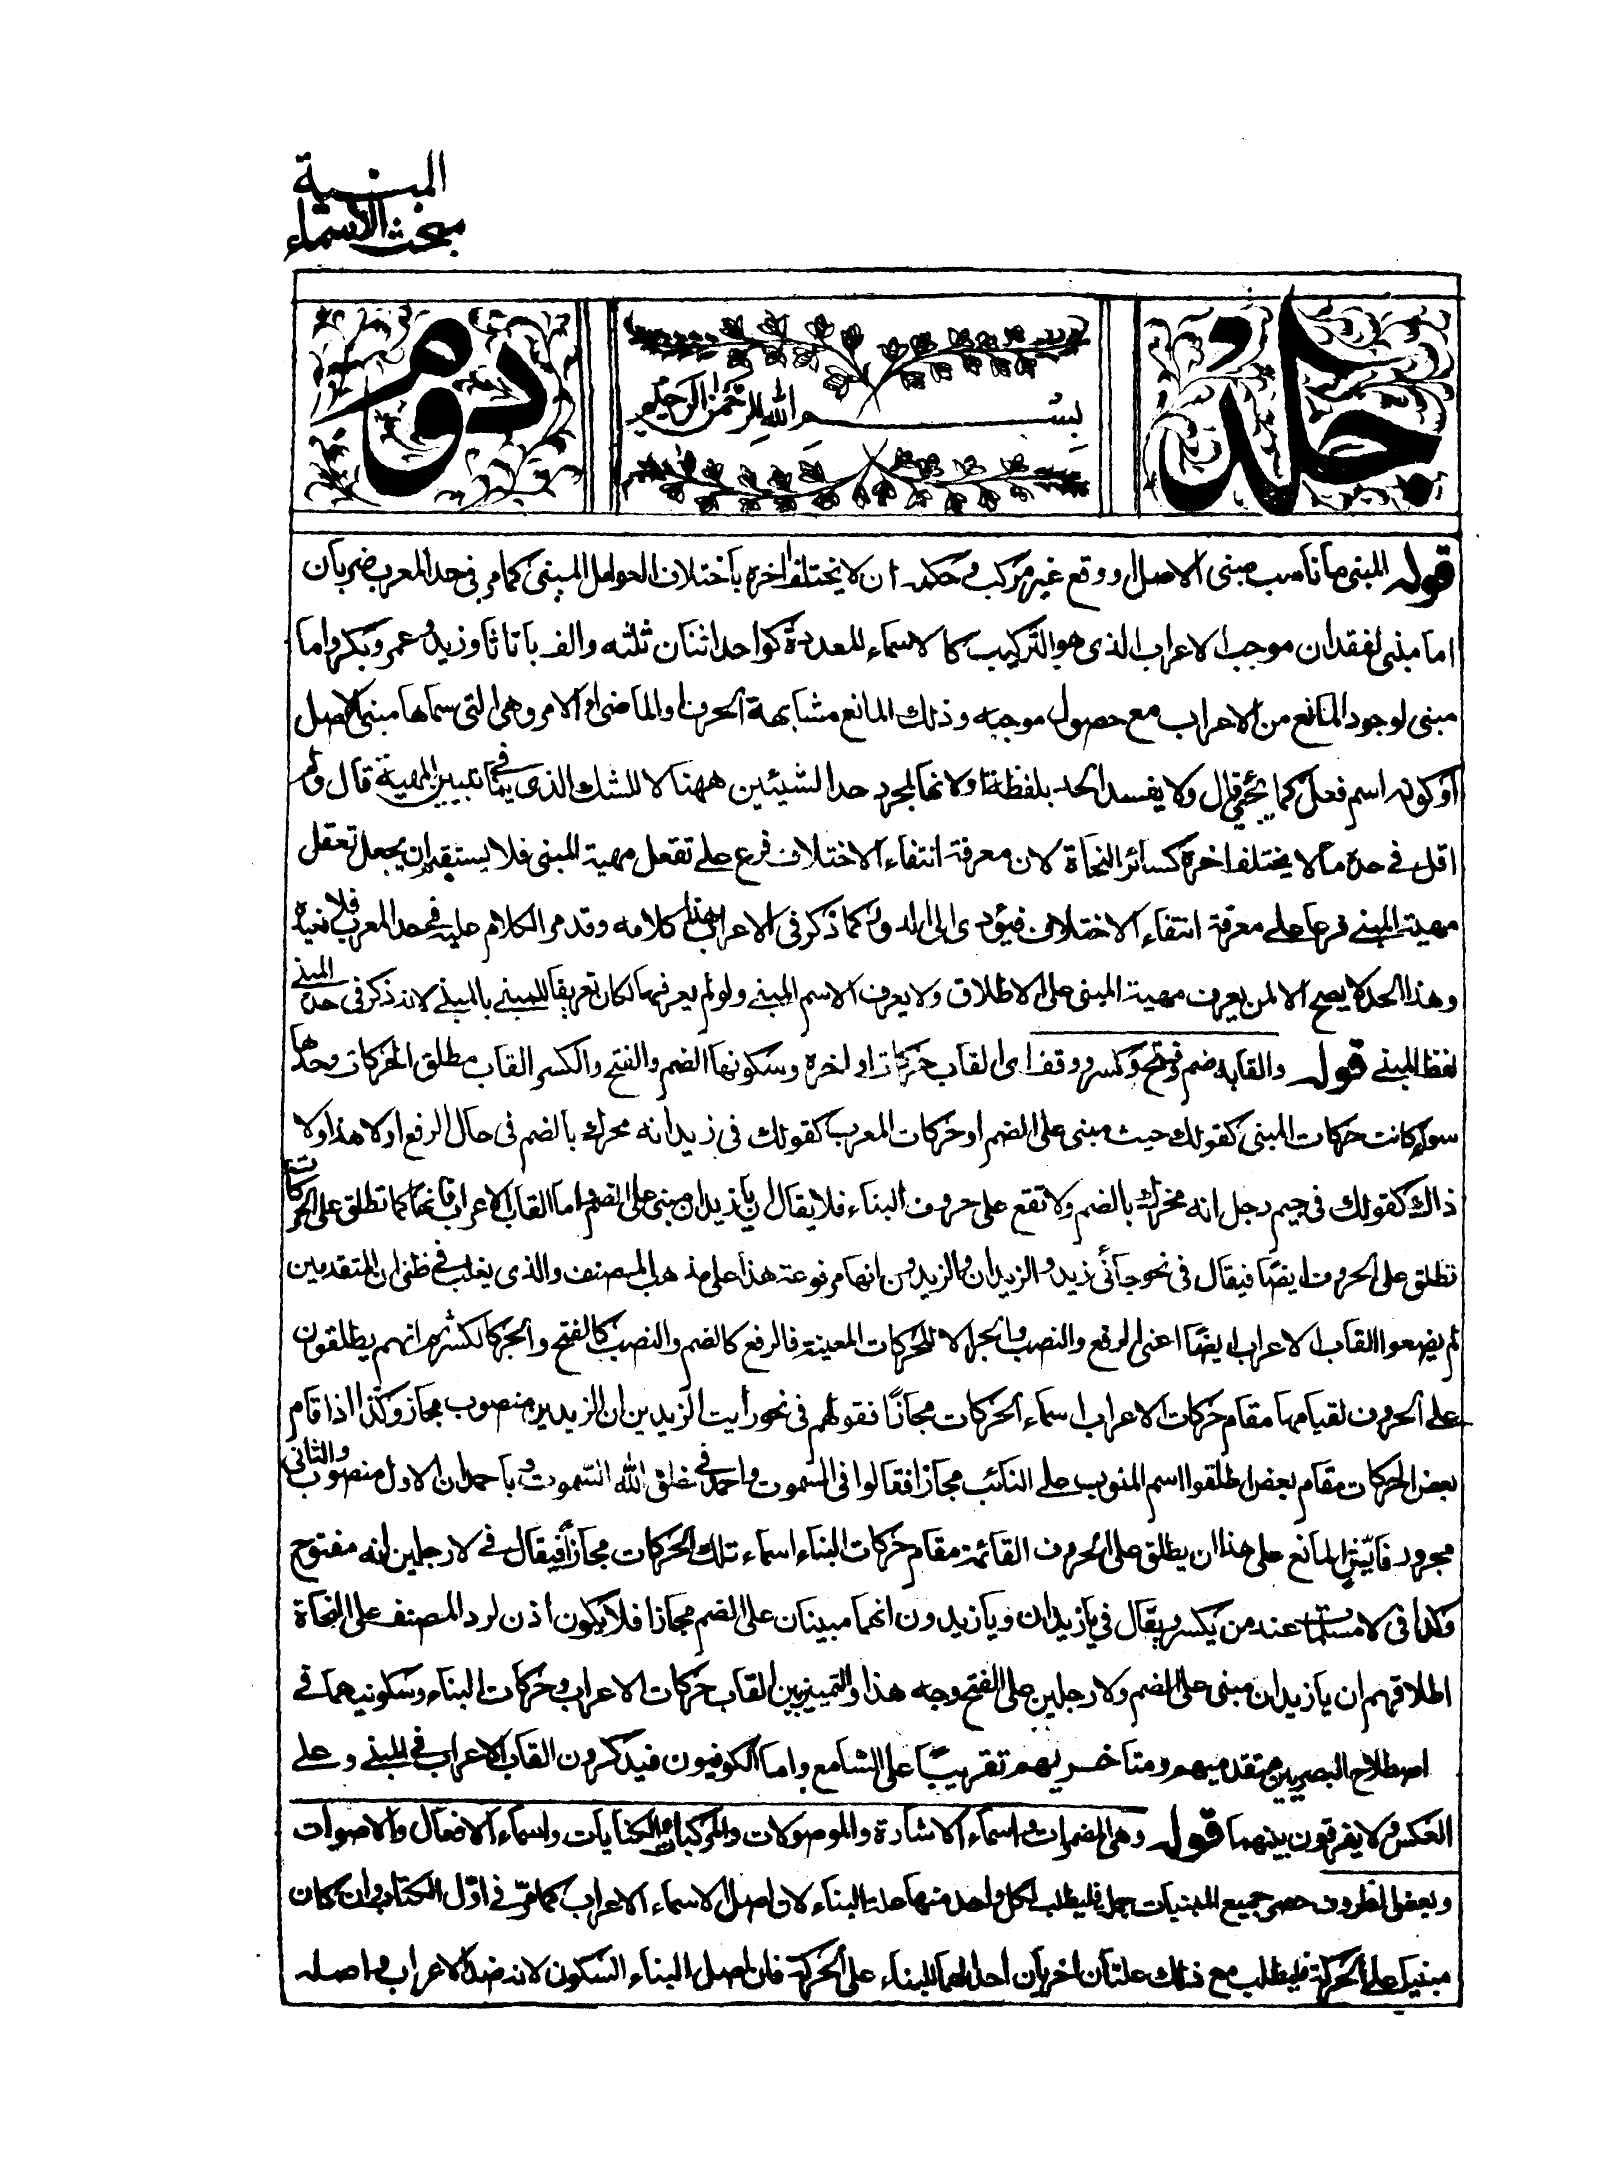 المبنية
مبحث الأسماء
جلد
بسم الله الرحمن الرحيم
دوم
قوله المبنى ما ناسب مبنى الاصل او وقع غير مركب وحكمه ان لا يختلف اخره باختلاف العوامل المبنى كما مر فى حد المعرب ضربان
اما مبنى لفقدان موجب الاعراب الذى هو التركيب كالاسماء المعددة كواحد اثنان ثلثه والف با تا ثا وزيد عمرو بكر واما
مبنى لوجود المانع من الاعراب مع حصول موجبه وذلك المانع مشابهة الحرف او الماضى او الامر وهى التى سماها مبنى الاصل
او كونه اسم فعل كما يجئ قال ولا يفسد الحد بلفظة او لانها لمجرد حد الشيئين ههنا لا للشك الذى ينافى تبيين المهية قال ولم
اقل فى حده ما لا يختلف اخره كسائر النحاة لان معرفة انتفاء الاختلاف فرع على تعقل مهية المبنى فلا يستقيم ان يجعل تعقل
مهية المبنى فرعا على معرفة انتفاء الاختلاف فيؤدى الى الدور كما ذكر فى الاعراب هذا كلامه وقد مر الكلام عليه فى حد المعرب فلا نعيده
وهذا الحد لا يصح الا لمن يعرف مهية المبنى على الاطلاق ولا يعرف الاسم المبنى ولو لم يعرفها لكان تعريفا للمبنى بالمبنى لانه ذكر فى حد المبنى
لفظ المبنى قوله والقابه ضم وفتح وكسر ووقف اى القاب حركات اواخره وسكونها الضم والفتح والكسر القاب مطلق الحركات وحدها
سواء كانت حركات المبنى كقولك حيث مبنى على الضم او حركات المعرب كقولك فى زيد انه محرك بالضم فى حال الرفع اولا هذا ولا
ذاك كقولك فى جيم رجل انه محرك بالضم ولا تقع على حروف البناء فلا يقال ان يا زيدان مبنى على الضم واما القاب الاعراب فانها كما تطلق على الحركات
تطلق على الحروف ايضا فيقال فى نحو جاءنى زيد والزيدان والزيدون انها مرفوعة هذا على مذهب المصنف والذى يغلب فى ظنى ان المتقدمين
لم يضعوا القاب الاعراب ايضا اعنى الرفع والنصب والجر الا للحركات المعينة فالرفع كالضم والنصب كالفتح والجر كالكسر ثم انهم يطلقون
على الحروف لقيامها مقام حركات الاعراب اسماء الحركات مجازا فقولهم فى نحو رايت الزيدين ان الزيدين منصوب مجاز وكذا اذا قام
بعض الحركات مقام بعض اطلقوا اسم المنوب على النائب مجازا فقالوا فى السموت واحمد فى خلق الله السموت وباحمد ان الاول منصوب والثانى
مجرور على هذا ان يطلق على الحروف القائمة مقام حركات البناء اسماء تلك الحركات مجازا فيقال فى لا رجلين انه مفتوح
وكذا فى لا مسلمات عند من يكسر ويقال فى يا زيدان ويا زيدون انهما مبنيان على الضم مجازا فلا يكون اذن لرد المصنف على النحاة
اطلاقهم ان يا زيدان مبنى على الضم ولا رجلين على الفتح وجه هذا والتمييز بين القاب حركات الاعراب وحركات البناء وسكونيهما فى
اصطلاح البصريين متقدميهم ومتاخريهم تقريبا على السامع واما الكوفيون فيذكرون القاب الاعراب فى المبنى وعلى
العكس ولا يفرقون بينهما قوله وهى المضمرات واسماء الاشارة والموصولات والمركبات والكنايات واسماء الافعال والاصوات
وبعض الظروف حصر جميع المبنيات فليطلب لكل واحد منها علة البناء لان اصل الاسماء الاعراب كما مر فى اول الكتاب وان كان
مبنيا على الحركة فليطلب مع ذلك علتان اخريان احدهما للبناء على الحركة فان اصل البناء السكون لانه ضد الاعراب واصله